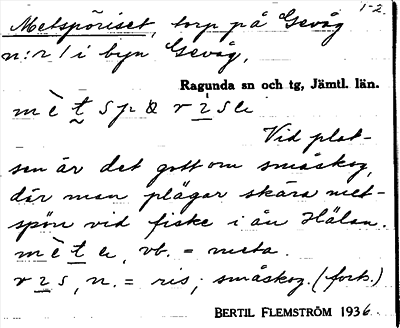 1-2.
Metspöriset, torp på Gevåg
n:r 1 i byn Gevåg,
Ragunda sn och tg, Jämtl. län.
Vid plat-
sen är det gott om småskog,
där man plägar skära met-
spön vid fiske i ån Hälan.
vb. = meta.
n. = ris; småskog. (fork.)
BERTIL FLEMSTRÖM 1936.